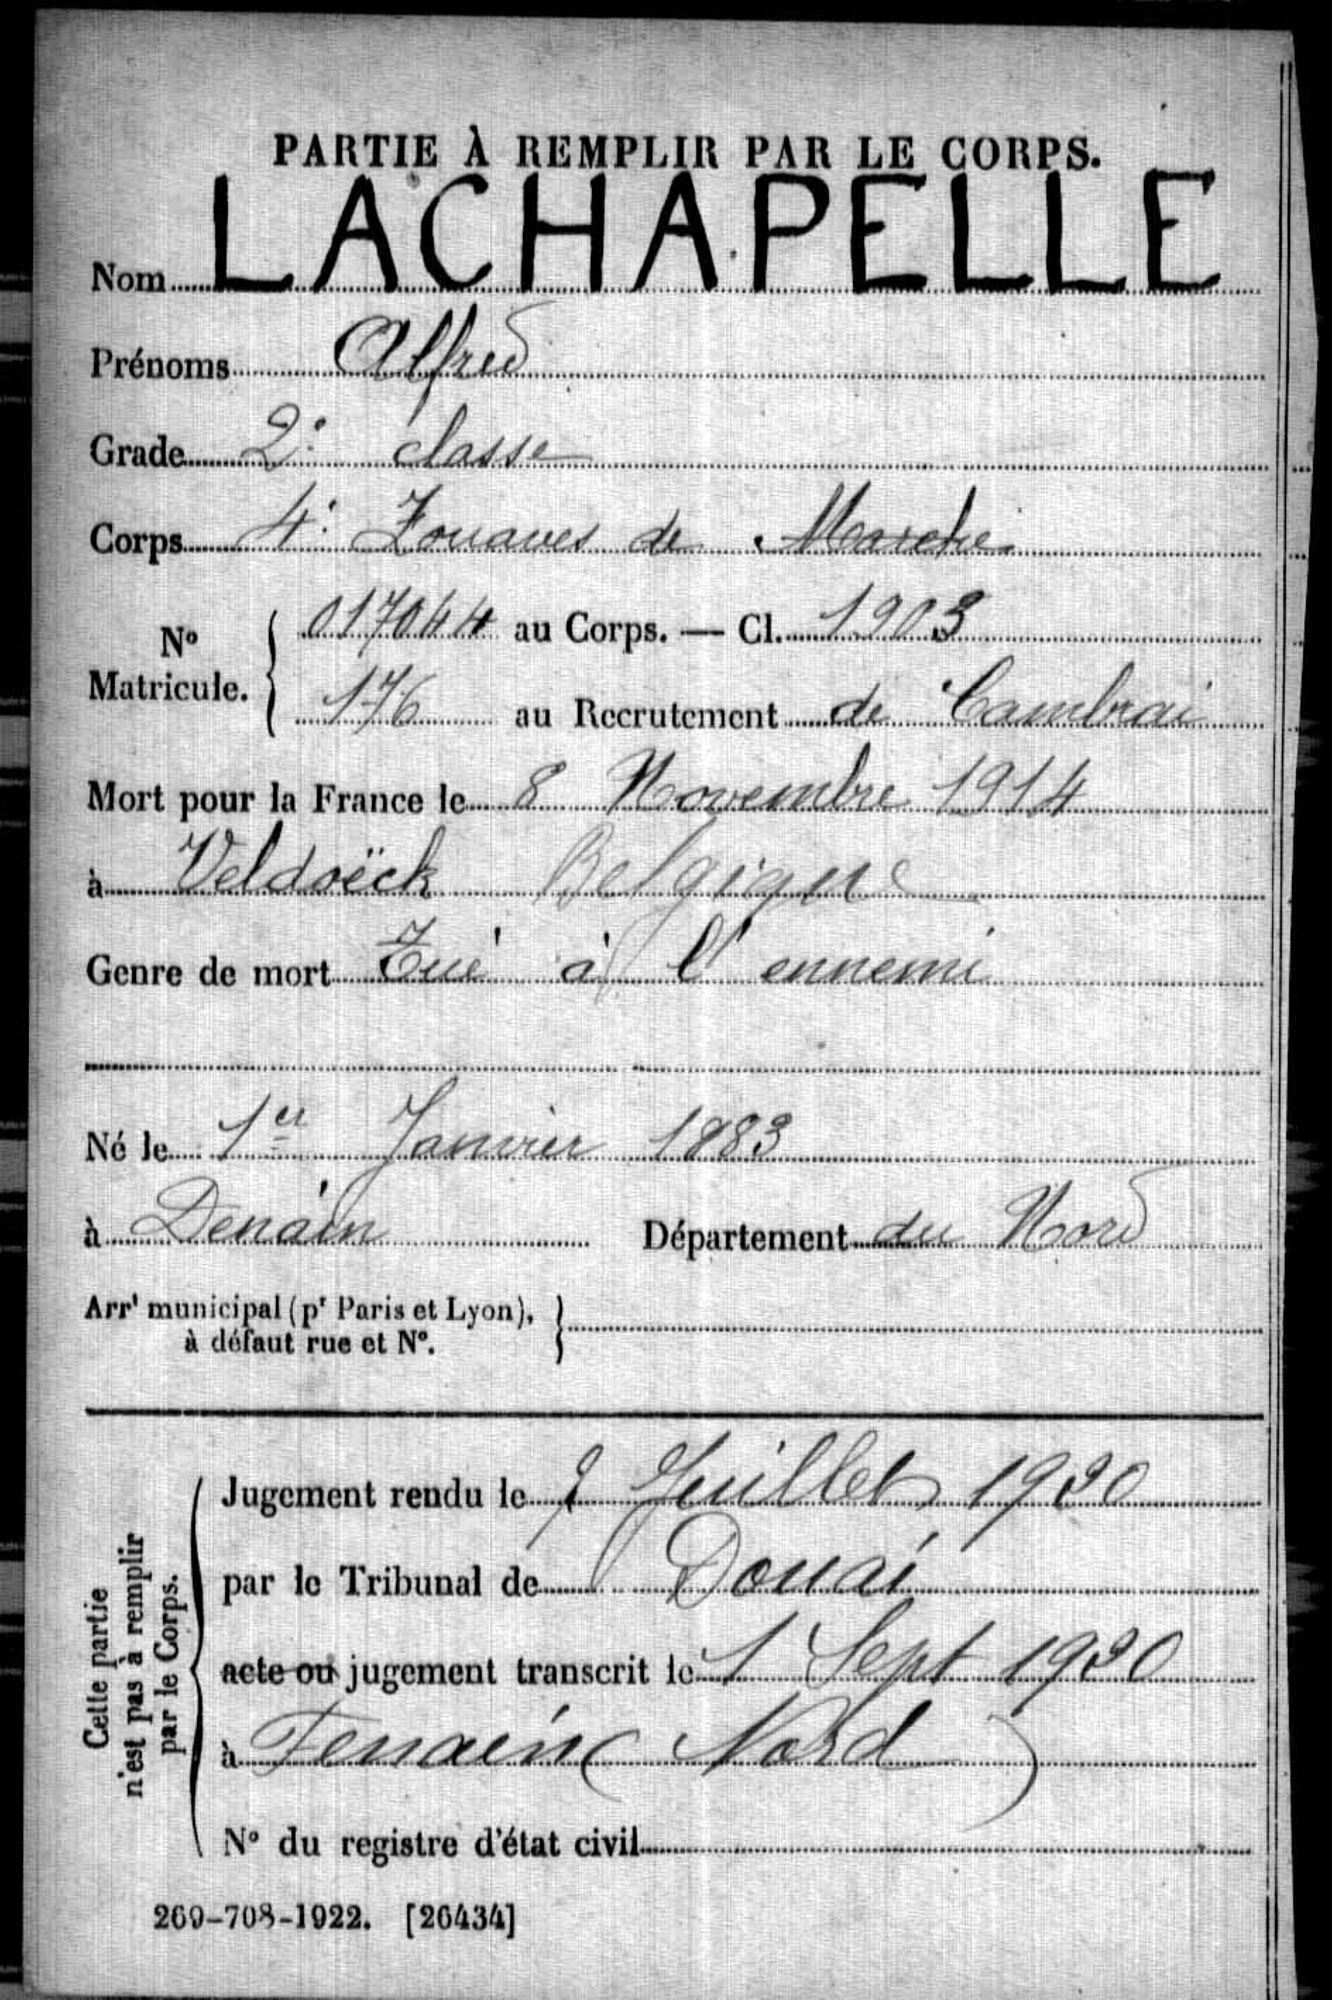 PARTIE À REMPLIR PAR LE CORPS.
Nom LACHAPELLE
Prénoms Alfred
Grade 2e classe
Corps 4e Zouaves de Marche
No Matricule. { 017044 au Corps. — Cl. 1903
176 au Recrutement de Cambrai
Mort pour la France le 8 Novembre 1914
à Veldoëck Belgique
Genre de mort Tué à l'ennemi
Né le 1er Janvier 1883
à Denain Département du Nord
Arrt municipal (pr Paris et Lyon), }
à défaut rue et No.
Cette partie
n'est pas à remplir
par le Corps.
Jugement rendu le Juillet 1920
par le Tribunal de Douai
acte ou jugement transcrit le 1 Sept 1920
à Fenain (Nord)
No du registre d'état civil
269-708-1922. [26434]